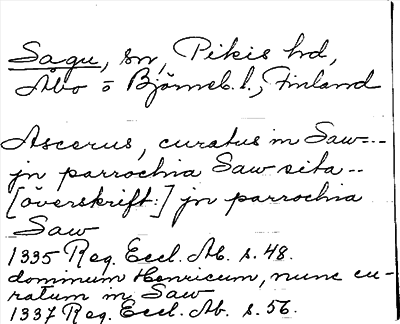 Sagu, sn, Pikis hd,
Åbo o Björneb. l., Finland
Ascerus, curatus in Saw---
jn parrochia Saw sita --
[överskrift:] jn parrochia
Saw
1335 Reg. Eccl. Ab. s. 48.
dominum Henricum, nunc cu-
ratum in Saw
1337 Reg. Eccl. Ab. s. 56.